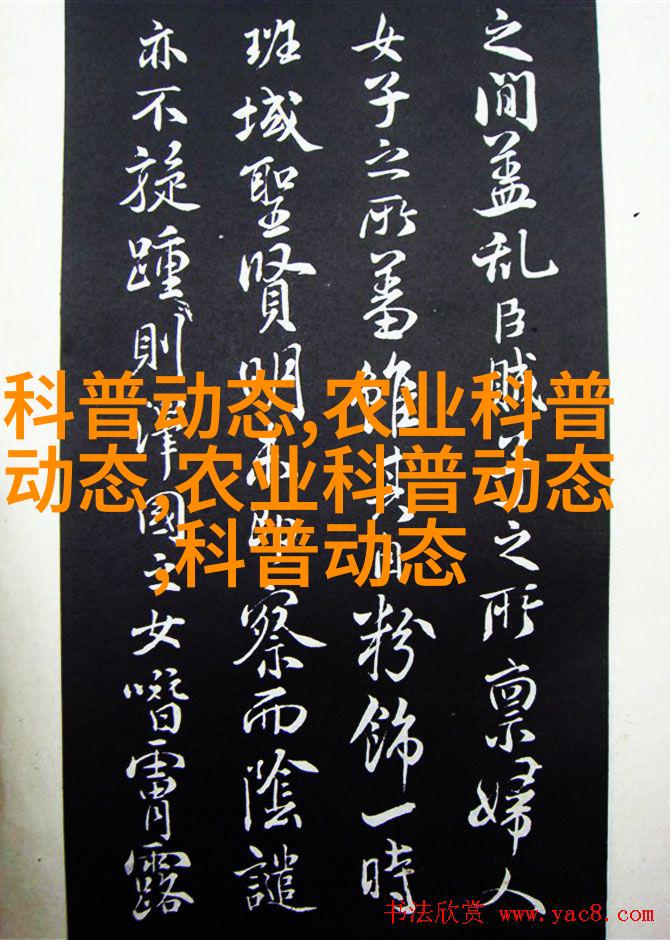 之間蓋乱臣賊子之所禀婦人
女子之所蓄雖其自粉飾一時
班域聖賢明察而陰譴
亦不旋踵則澤國之女噆霄露
科普动态,农业科普
动态,农业科普动态
,科普动态
书法欣赏 www.yac8.com